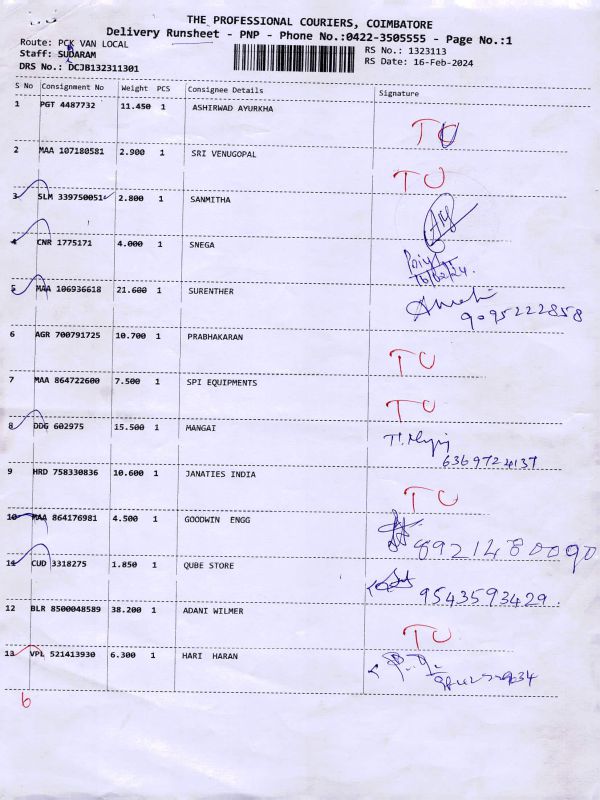 THE PROFESSIONAL COURIERS, COIMBATORE
Delivery Runsheet - PNP - Phone No.:0422-3505555 - Page No.:1
Route: PCK VAN LOCAL
RS No.: 1323113
Staff: SUDARAM
RS Date: 16-Feb-2024
DRS No.: DCJB132311301
S No Consignment No Weight PCS Consignee Details Signature
1 PGT 4487732 11.450 1 ASHIRWAD AYURKHA
TO
2 MAA 107180581 2.900 1 SRI VENUGOPAL
TO
3 SLM 339750051 2.800 1 SANMITHA
4 CNR 1775171 4.000 1 SNEGA
16/02/24.
5 MAA 106936618 21.600 1 SURENTHER
9095222858
6 AGR 700791725 10.700 1 PRABHAKARAN
TO
7 MAA 864722600 7.500 1 SPI EQUIPMENTS
TO
8 DDG 602975 15.500 1 MANGAI
6369724137
9 HRD 758330836 10.600 1 JANATIES INDIA
TO
10 MAA 864176981 4.500 1 GOODWIN ENGG
8921480090
11 CUD 3318275 1.850 1 QUBE STORE
9543593429
12 BLR 8500048589 38.200 1 ADANI WILMER
TO
13 VPL 521413930 6.300 1 HARI HARAN
6